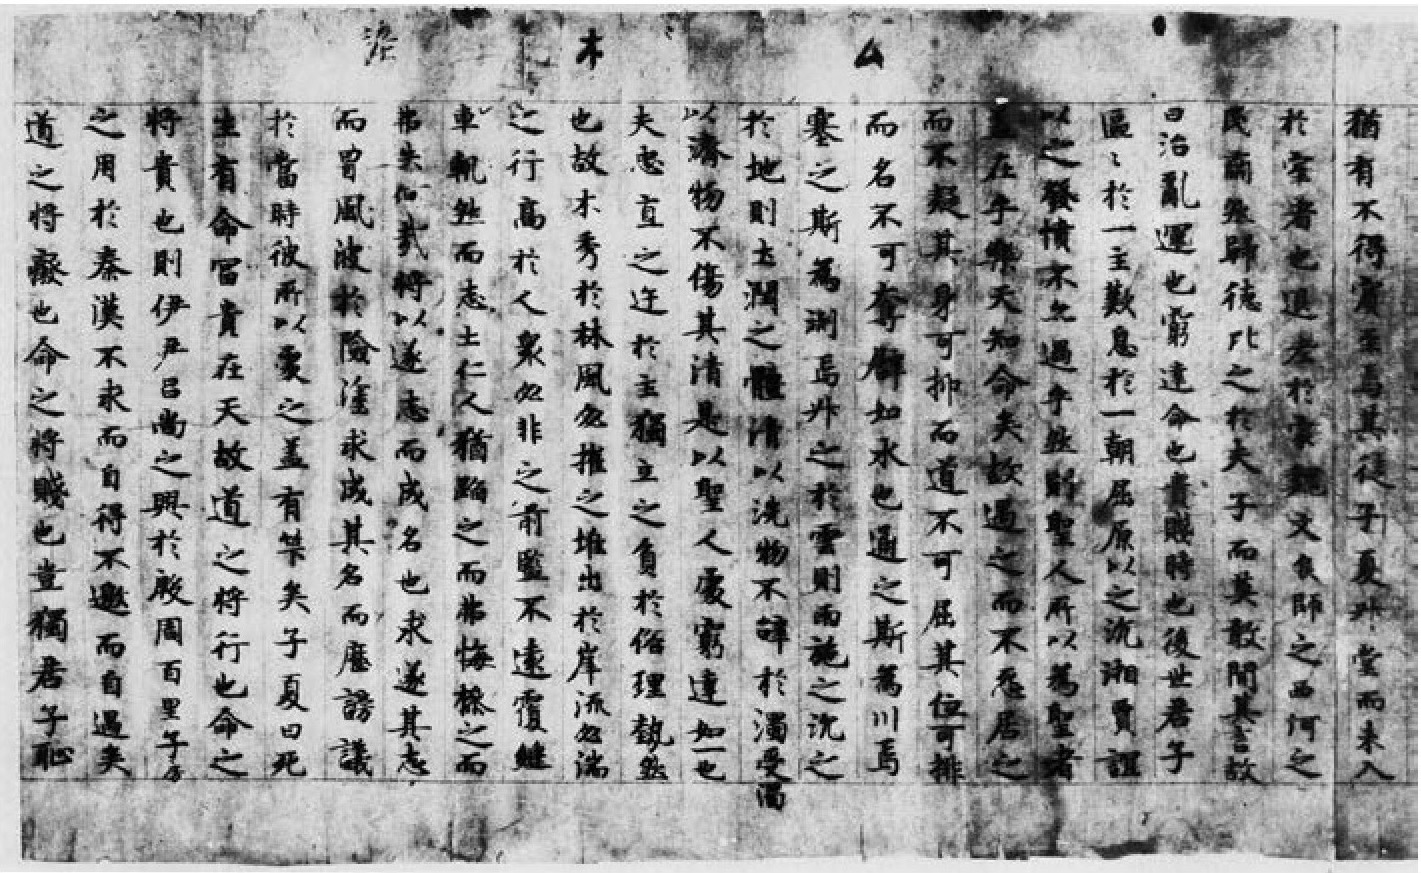 猶有不得賓至焉其徒子夏升堂而未入
於室者也退老於家魏文侯師之西河之
民肅然歸德比之於夫子而莫敢間其言故
曰治亂運也窮達命也貴賤時也後世君子
區〻於一主歎息於一朝屈原以之沉湘賈誼
以之發憤不亦過乎然則聖人所以為聖者
蓋在乎樂天知命矣故遇之而不怨居之
而不疑其身可抑而道不可屈其位可排
而名不可奪辟如水也通之斯為川焉
塞之斯為渕焉升之於雲則雨施之沉之
於地則土潤之體清以洗物不辞於濁受濁
以濟物不傷其清是以聖人處窮達如一也
夫忠直之迕於主獨立之負於俗理勢然
也故木秀於林風必摧之堆出於岸流必湍
之行高於人衆必非之前監不遠覆鮏
車軌然而志士仁人猶蹈之而弗悔操之而
弗失何哉將以遂志而成名也求遂其志
而冒風波於險塗求成其名而歷謗議
於當時彼所以處之盖有筭矣子夏曰死
生有命富貴在天故道之將行也命之
將貴也則伊尹呂尚之興於殷周百里子房
之用於秦漢不求而自得不邀而自遇矣
道之將廢也命之將賤也豈獨君子恥
厶
木